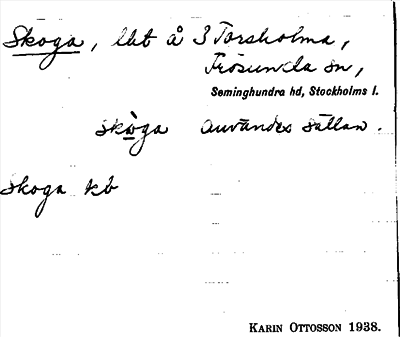 Skoga, lht å 3 Torsholma,
Frösunda sn,
Seminghundra hd, Stockholms l.
skò̱ga användes sällan.
Skoga kb
KARIN OTTOSSON 1938.